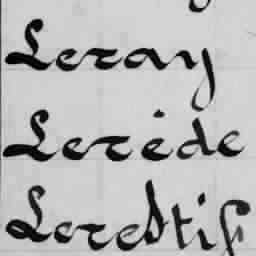 Leray
Lerède
Lerestif